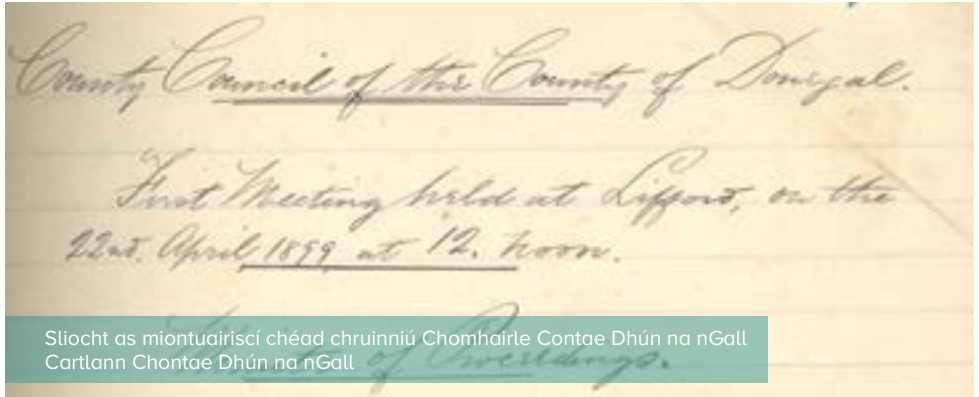 County Council of the County of Donegal.
First Meeting held at Lifford, on the
22nd. April 1899 at 12. noon.
Minutes of Proceedings.
Sliocht as miontuairiscí chéad chruinniú Chomhairle Contae Dhún na nGall
Cartlann Chontae Dhún na nGall